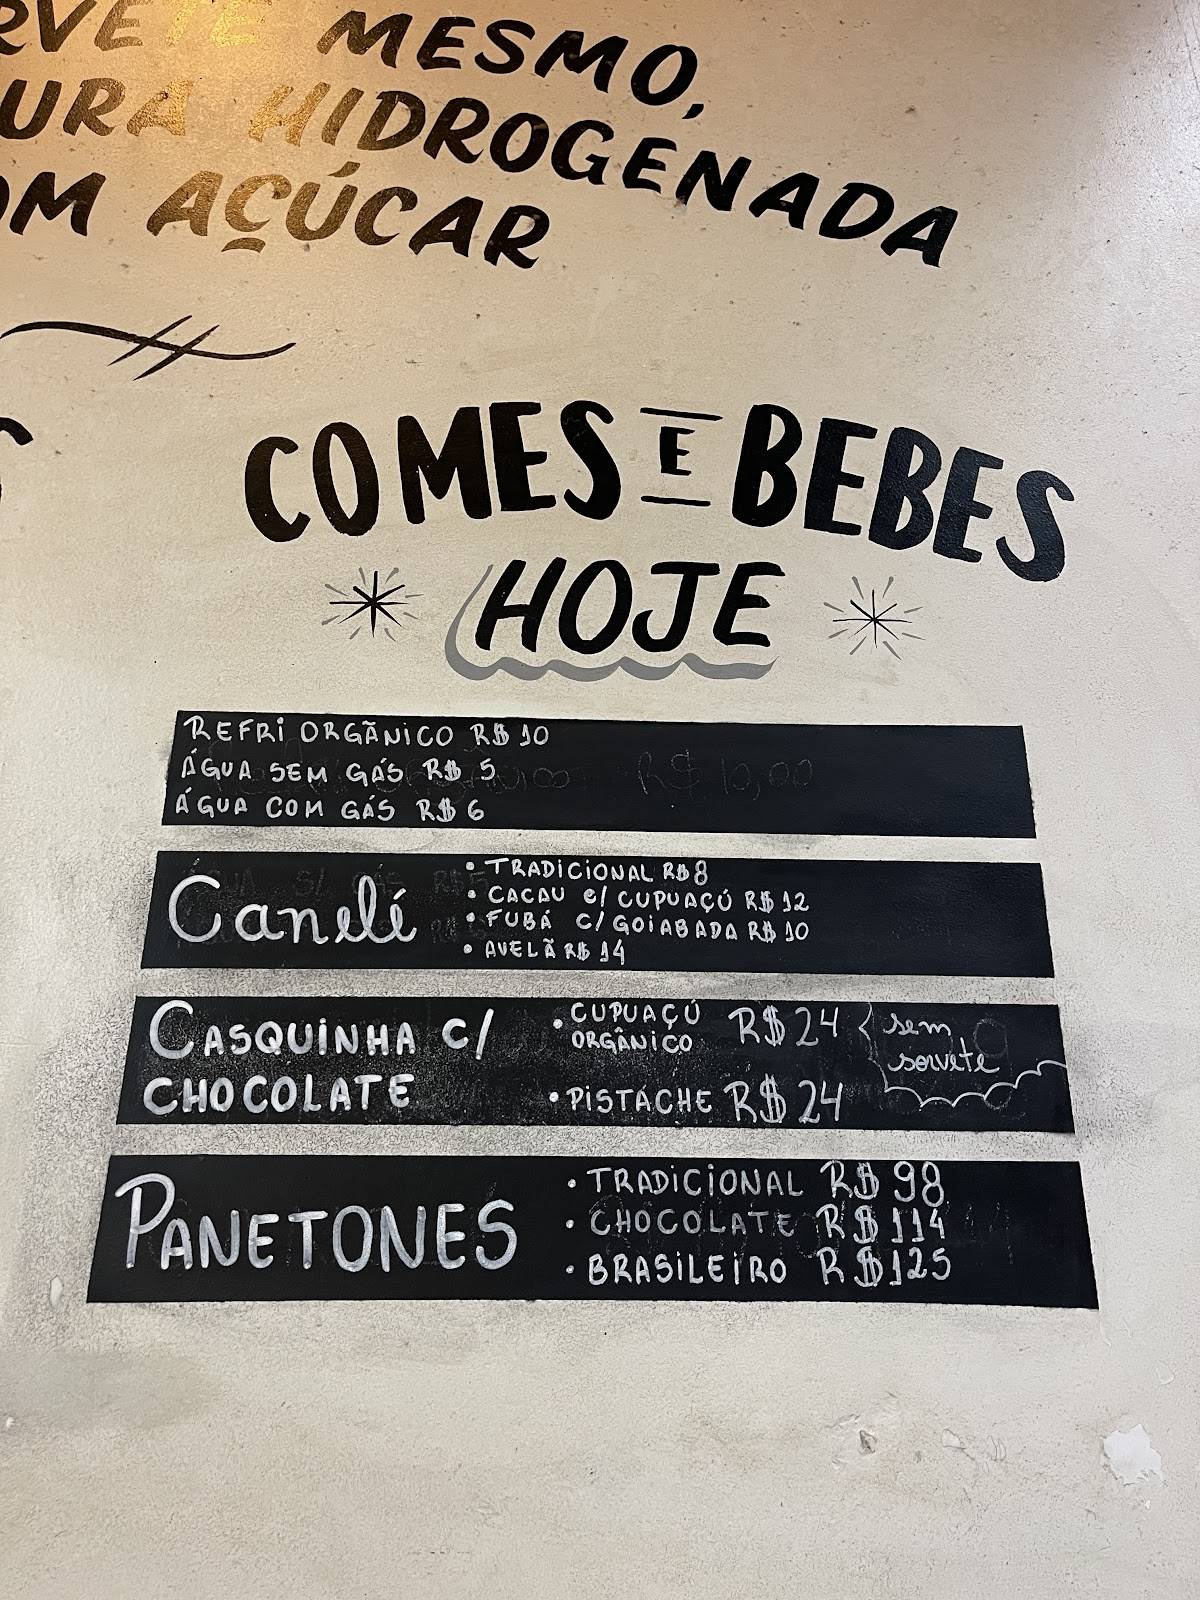 RVETE MESMO,
URA HIDROGENADA
OM AÇÚCAR
COMES E BEBES
HOJE
REFRI ORGÃNICO R$ 10
ÁGUA SEM GÁS R$ 5
ÁGUA COM GÁS R$ 6
Canelé
• TRADICIONAL R$ 8
• CACAU C/ CUPUAÇÚ R$ 12
• FUBÁ C/ GOIABADA R$ 10
• AVELÃ R$ 14
CASQUINHA C/
CHOCOLATE
• CUPUAÇÚ
ORGÂNICO R$ 24
sem
sorvete
• PISTACHE R$ 24
PANETONES
• TRADICIONAL R$ 98
• CHOCOLATE R$ 114
• BRASILEIRO R$ 125